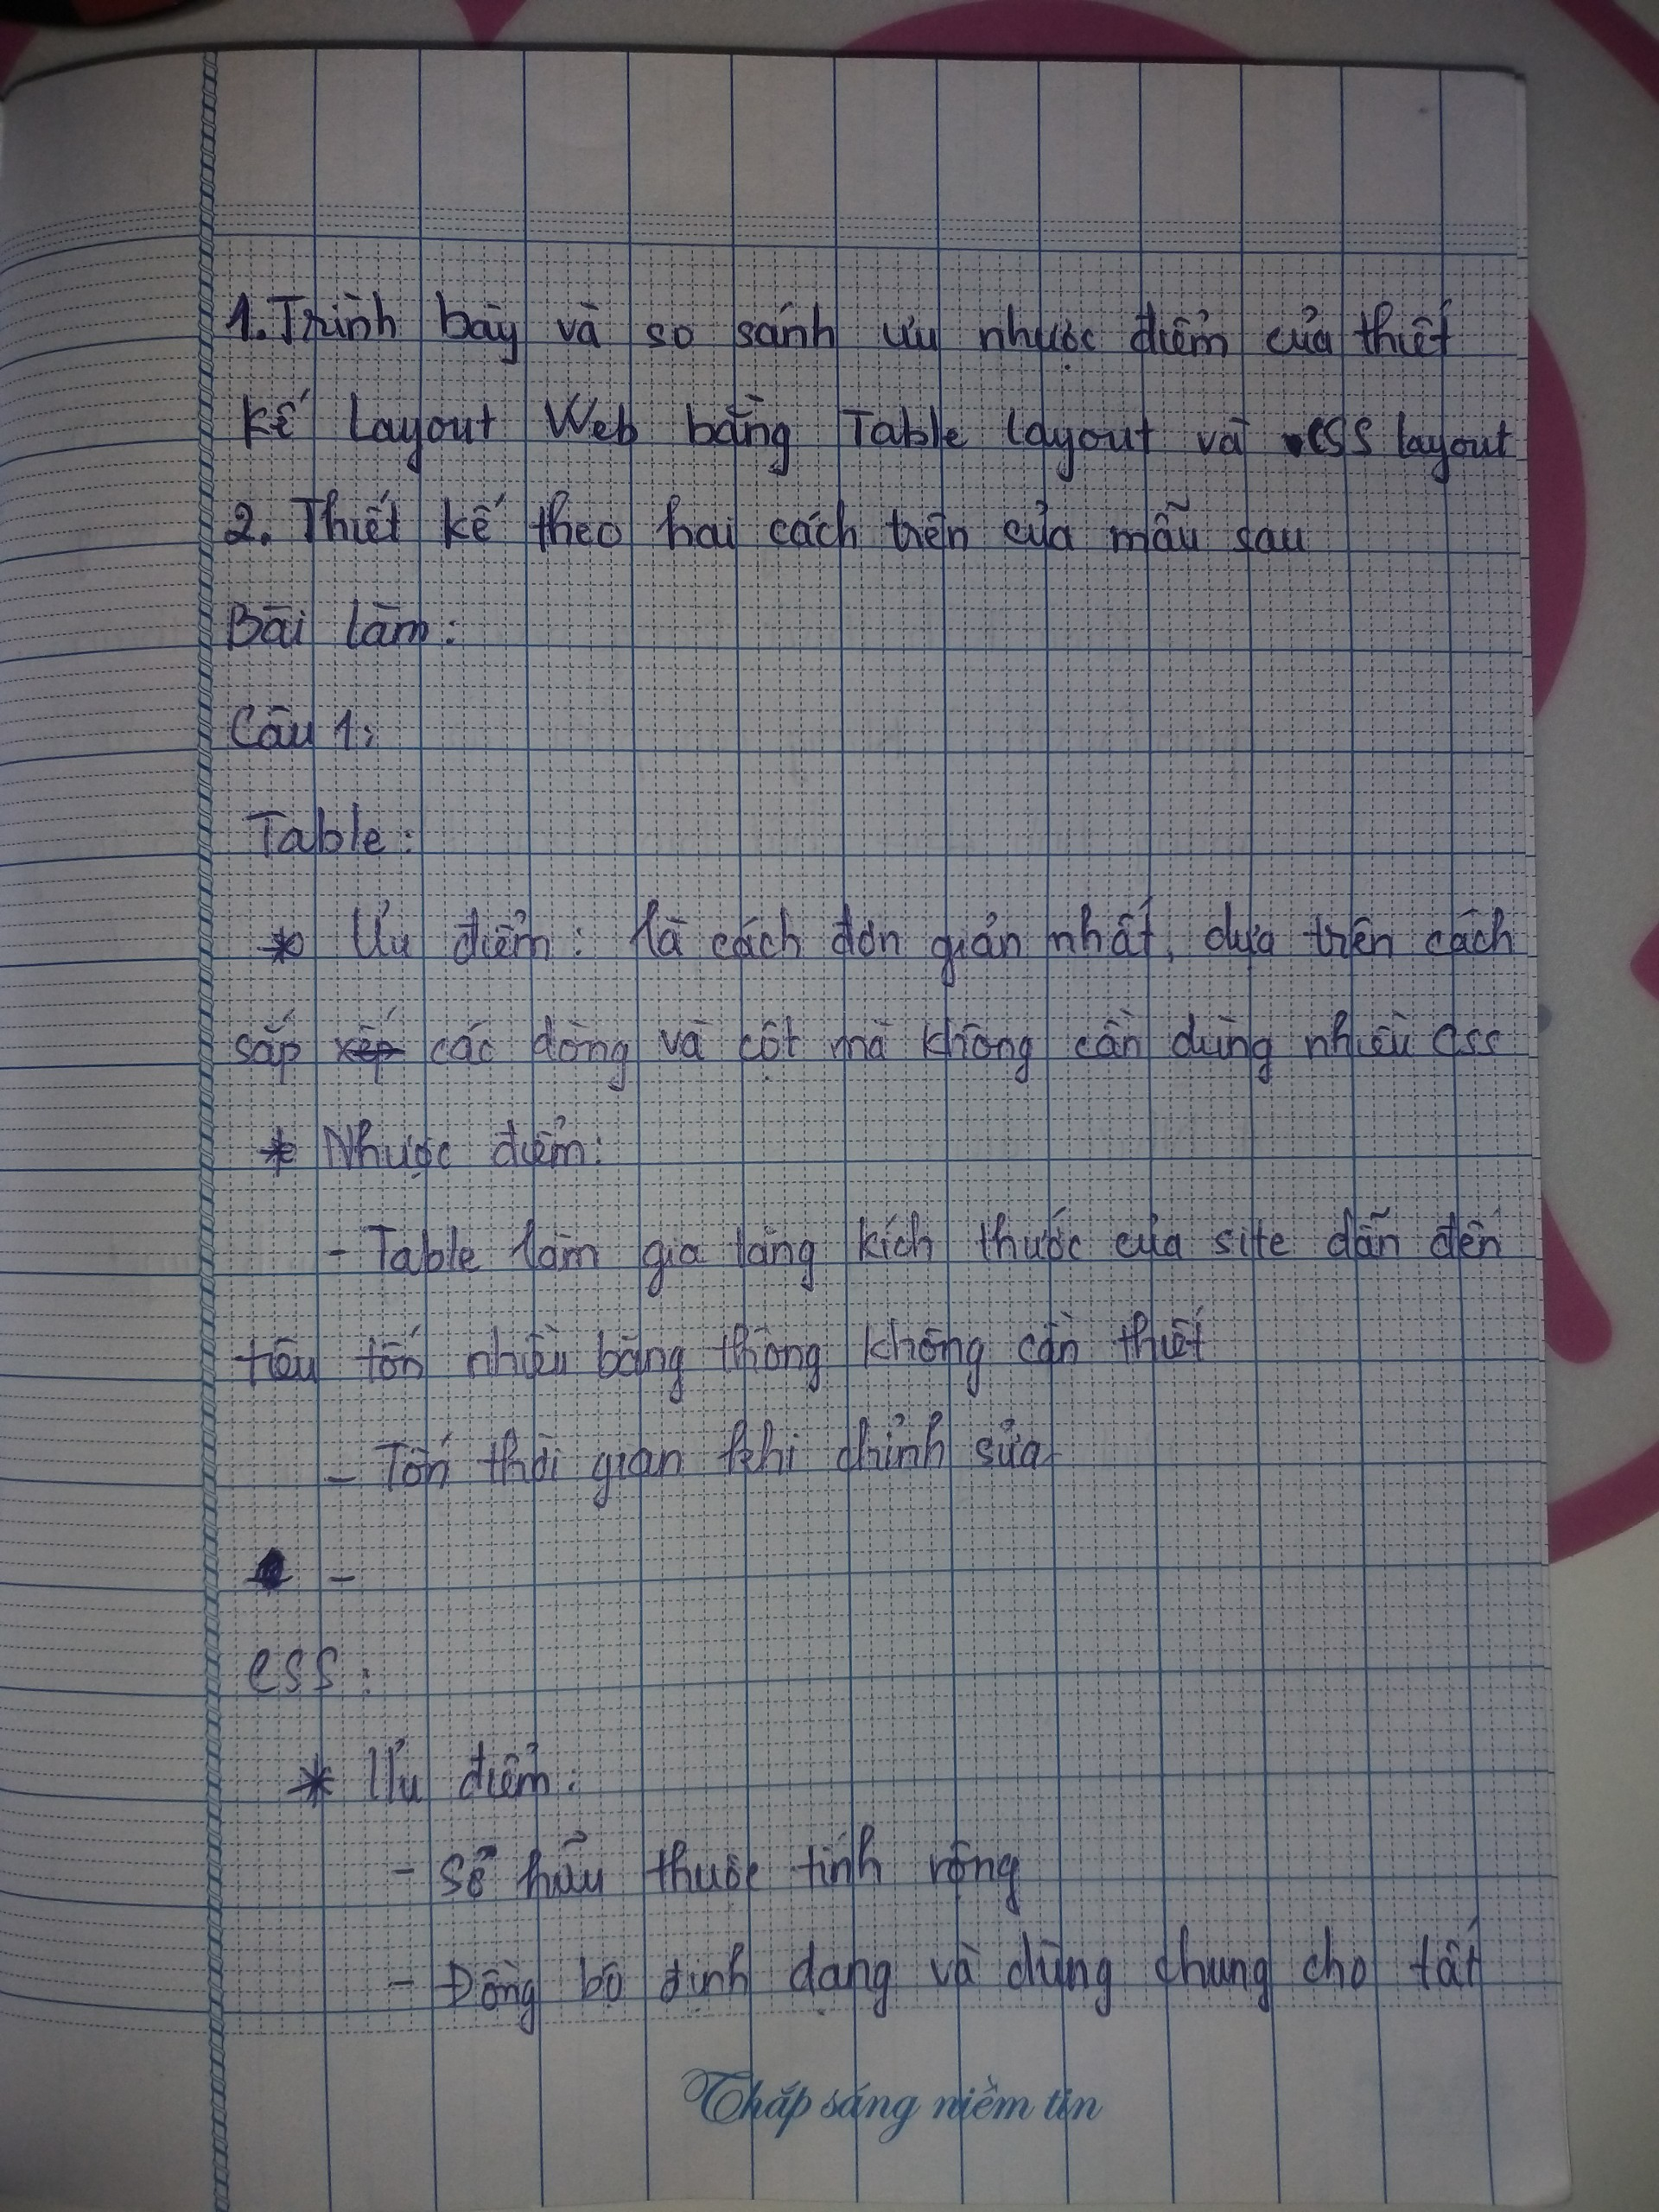 1. Trình bày và so sánh ưu nhược điểm của thiết
kế Layout Web bằng Table layout và CSS layout
2. Thiết kế theo hai cách trên của mẫu sau
Bài làm:
Câu 1:
Table:
* Ưu điểm: là cách đơn giản nhất, dựa trên cách
sắp xếp các dòng và cột mà không cần dùng nhiều css
* Nhược điểm:
- Table làm gia tăng kích thước của site dẫn đến
tiêu tốn nhiều băng thông không cần thiết
- Tốn thời gian khi chỉnh sửa
-
CSS:
* Ưu điểm:
- Sở hữu thuộc tính rộng
- Đồng bộ định dạng và dùng chung cho tất
Thắp sáng niềm tin